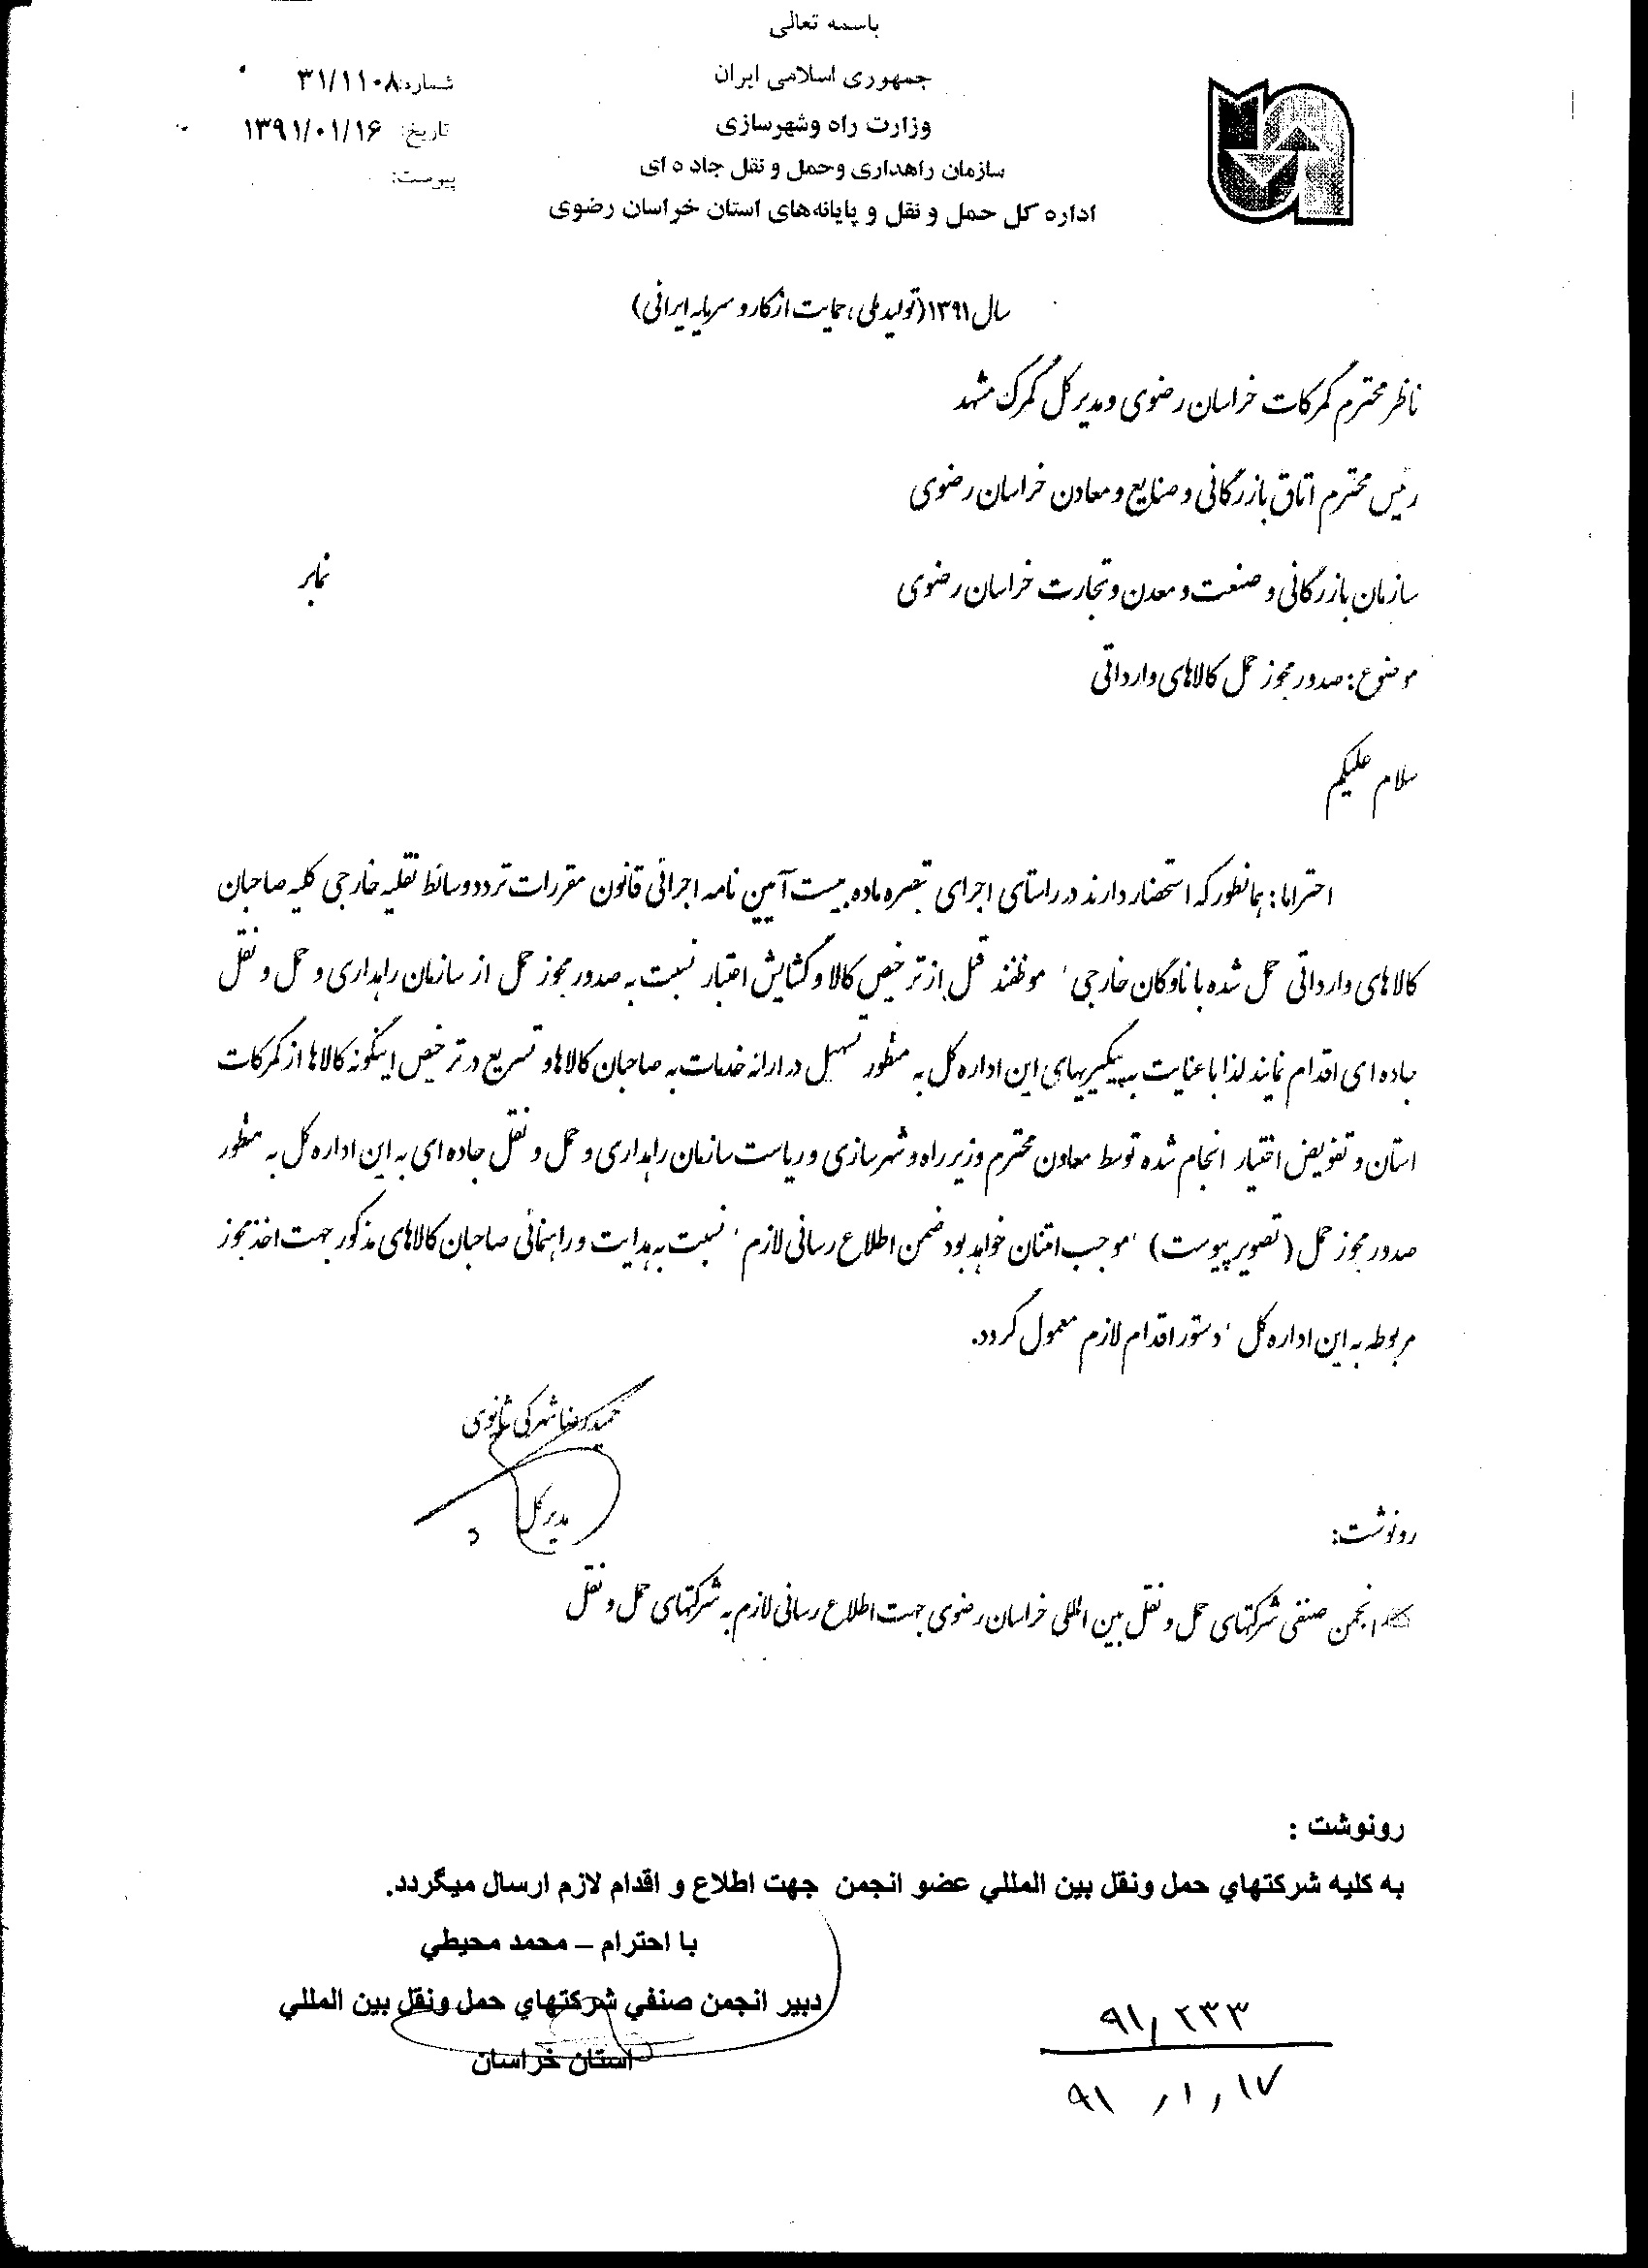 باسمه تعالی
جمهوری اسلامی ایران
وزارت راه وشهرسازی
سازمان راهداری وحمل و نقل جاده ای
اداره کل حمل و نقل و پایانه‌های استان خراسان رضوی
شماره: ۳۱/۱۱۰۸
تاریخ: ۱۳۹۱/۰۱/۱۶
پیوست:
سال ۱۳۹۱(تولید ملی، حمایت از کار و سرمایه ایرانی)
ناظر محترم گمرکات خراسان رضوی و مدیر کل گمرک مشهد
رئیس محترم اتاق بازرگانی و صنایع و معادن خراسان رضوی
سازمان بازرگانی و صنعت و معدن و تجارت خراسان رضوی
نمابر
موضوع: صدور مجوز حمل کالاهای وارداتی
سلام علیکم
احتراما: همانطور که استحضار دارند در راستای اجرای تبصره ماده بیست آیین نامه اجرائی قانون مقررات تردد وسائط نقلیه خارجی کلیه صاحبان
کالاهای وارداتی حمل شده با ناوگان خارجی، موظفند قبل از ترخیص کالا و گشایش اعتبار نسبت به صدور مجوز حمل از سازمان راهداری و حمل و نقل
جاده ای اقدام نمایند لذا با عنایت به پیگیریهای این اداره کل به منظور تسهیل در ارائه خدمات به صاحبان کالاها و تسریع در ترخیص اینگونه کالاها از گمرکات
استان و تفویض اختیار انجام شده توسط معاون محترم وزیر راه و شهرسازی و ریاست سازمان راهداری و حمل و نقل جاده ای به این اداره کل به منظور
صدور مجوز حمل (تصویر پیوست) ، موجب امتنان خواهد بود ضمن اطلاع رسانی لازم ، نسبت به هدایت و راهنمائی صاحبان کالاهای مذکور جهت اخذ مجوز
مربوطه به این اداره کل ، دستور اقدام لازم معمول گردد.
حمیدرضا شهرکی ثانوی
مدیر کل
رونوشت:
انجمن صنفی شرکتهای حمل و نقل بین المللی خراسان رضوی جهت اطلاع رسانی لازم به شرکتهای حمل و نقل
رونوشت :
به کلیه شرکتهاي حمل ونقل بین المللي عضو انجمن جهت اطلاع و اقدام لازم ارسال میگردد.
با احترام – محمد محیطي
دبیر انجمن صنفي شرکتهاي حمل ونقل بین المللي
استان خراسان
۹۱٫۲۳۳
۹۱ ٫ ۱ ٫ ۱۷